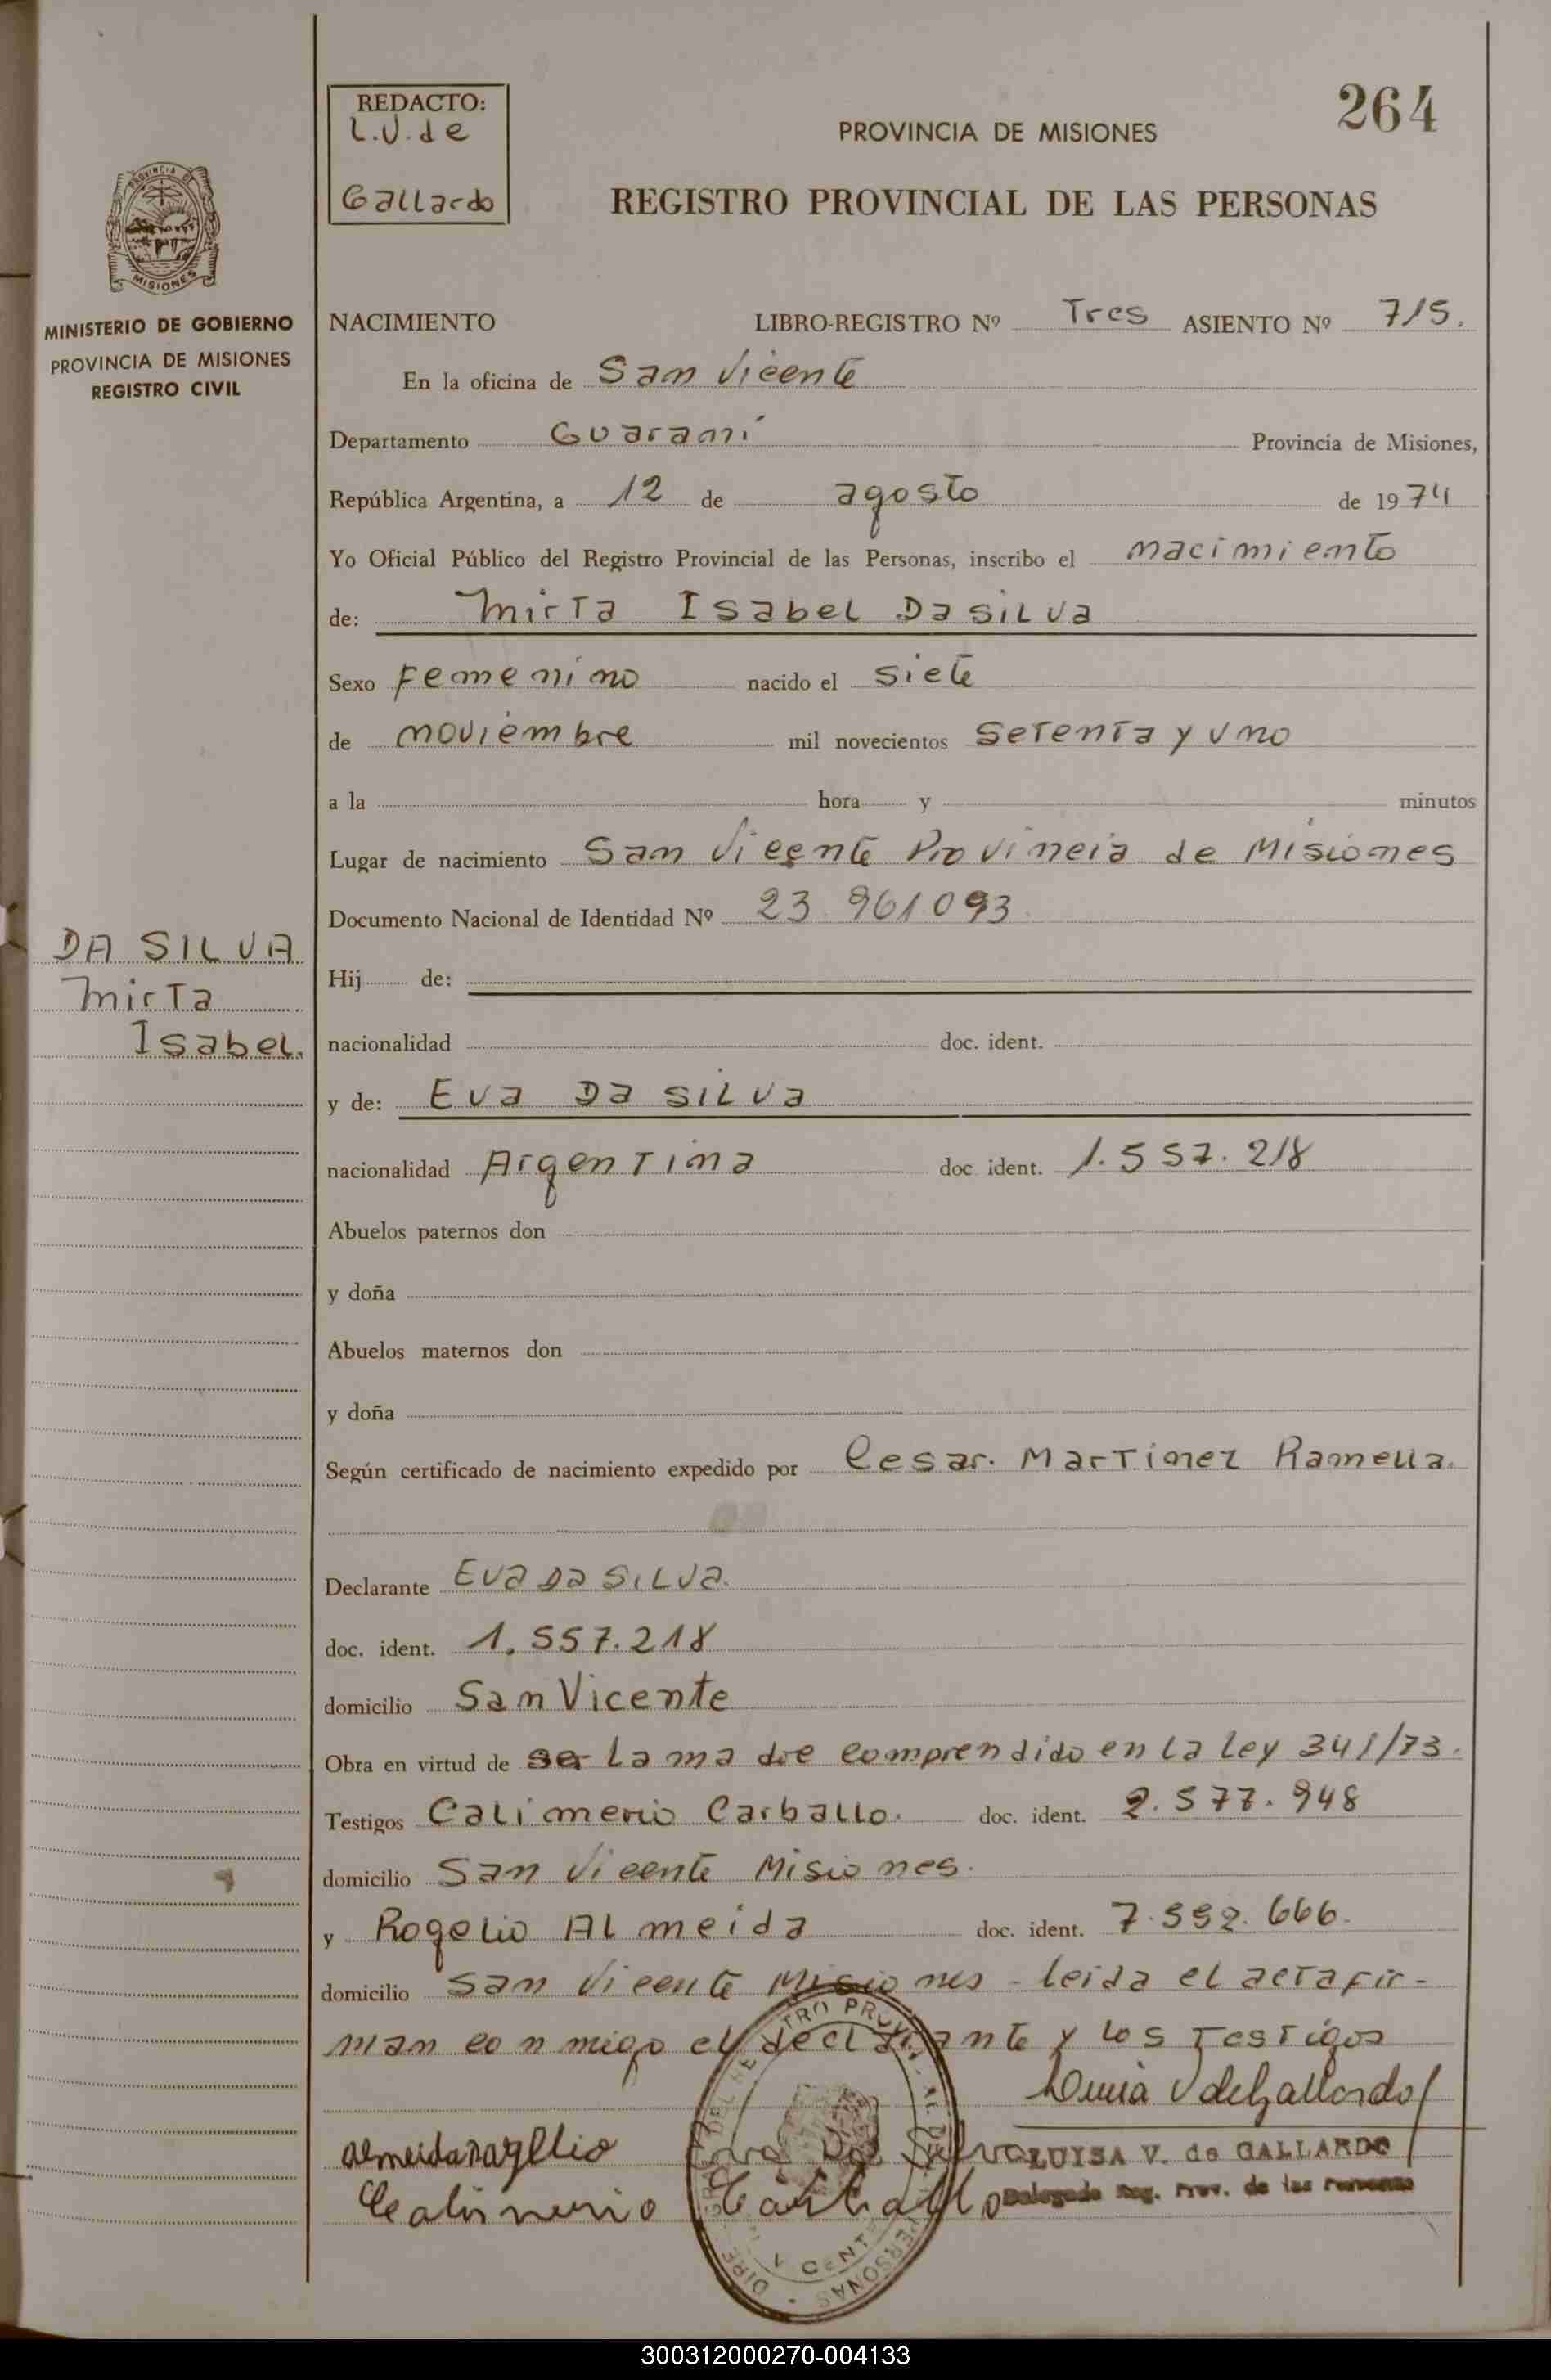 264
REDACTO:
L.V. de
Gallardo
PROVINCIA DE MISIONES
REGISTRO PROVINCIAL DE LAS PERSONAS
PROVINCIA DE
MISIONES
MINISTERIO DE GOBIERNO
PROVINCIA DE MISIONES
REGISTRO CIVIL
NACIMIENTO LIBRO-REGISTRO Nº Tres ASIENTO Nº 715.
En la oficina de San Vicente
Departamento Guaraní Provincia de Misiones,
República Argentina, a 12 de agosto de 1974
Yo Oficial Público del Registro Provincial de las Personas, inscribo el nacimiento
de: Mirta Isabel Da Silva
Sexo Femenino nacido el siete
de noviembre mil novecientos setenta y uno
a la hora y minutos
Lugar de nacimiento San Vicente Provincia de Misiones
Documento Nacional de Identidad Nº 23.961093
DA SILVA
Mirta
Isabel.
Hij de:
nacionalidad doc. ident.
y de: Eva Da Silva
nacionalidad Argentina doc ident. 1.557.218
Abuelos paternos don
y doña
Abuelos maternos don
y doña
Según certificado de nacimiento expedido por Cesar. Martinez Ramella.
Declarante Eva Da Silva.
doc. ident. 1.557.218
domicilio San Vicente
Obra en virtud de ser La ma dre comprendido en la Ley 341/73.
Testigos Calimerio Carballo. doc. ident. 2.577.948
domicilio San Vicente Misiones.
y Rogelio Almeida doc. ident. 7.552.666.
domicilio San Vicente Misiones - leida el acta fir-
man conmigo el declarante y los testigos
almeida Eva Da Silva
LUISA V. de GALLARDO
Delegada Reg. Prov. de las Personas
Calimerio Carballo
300312000270-004133